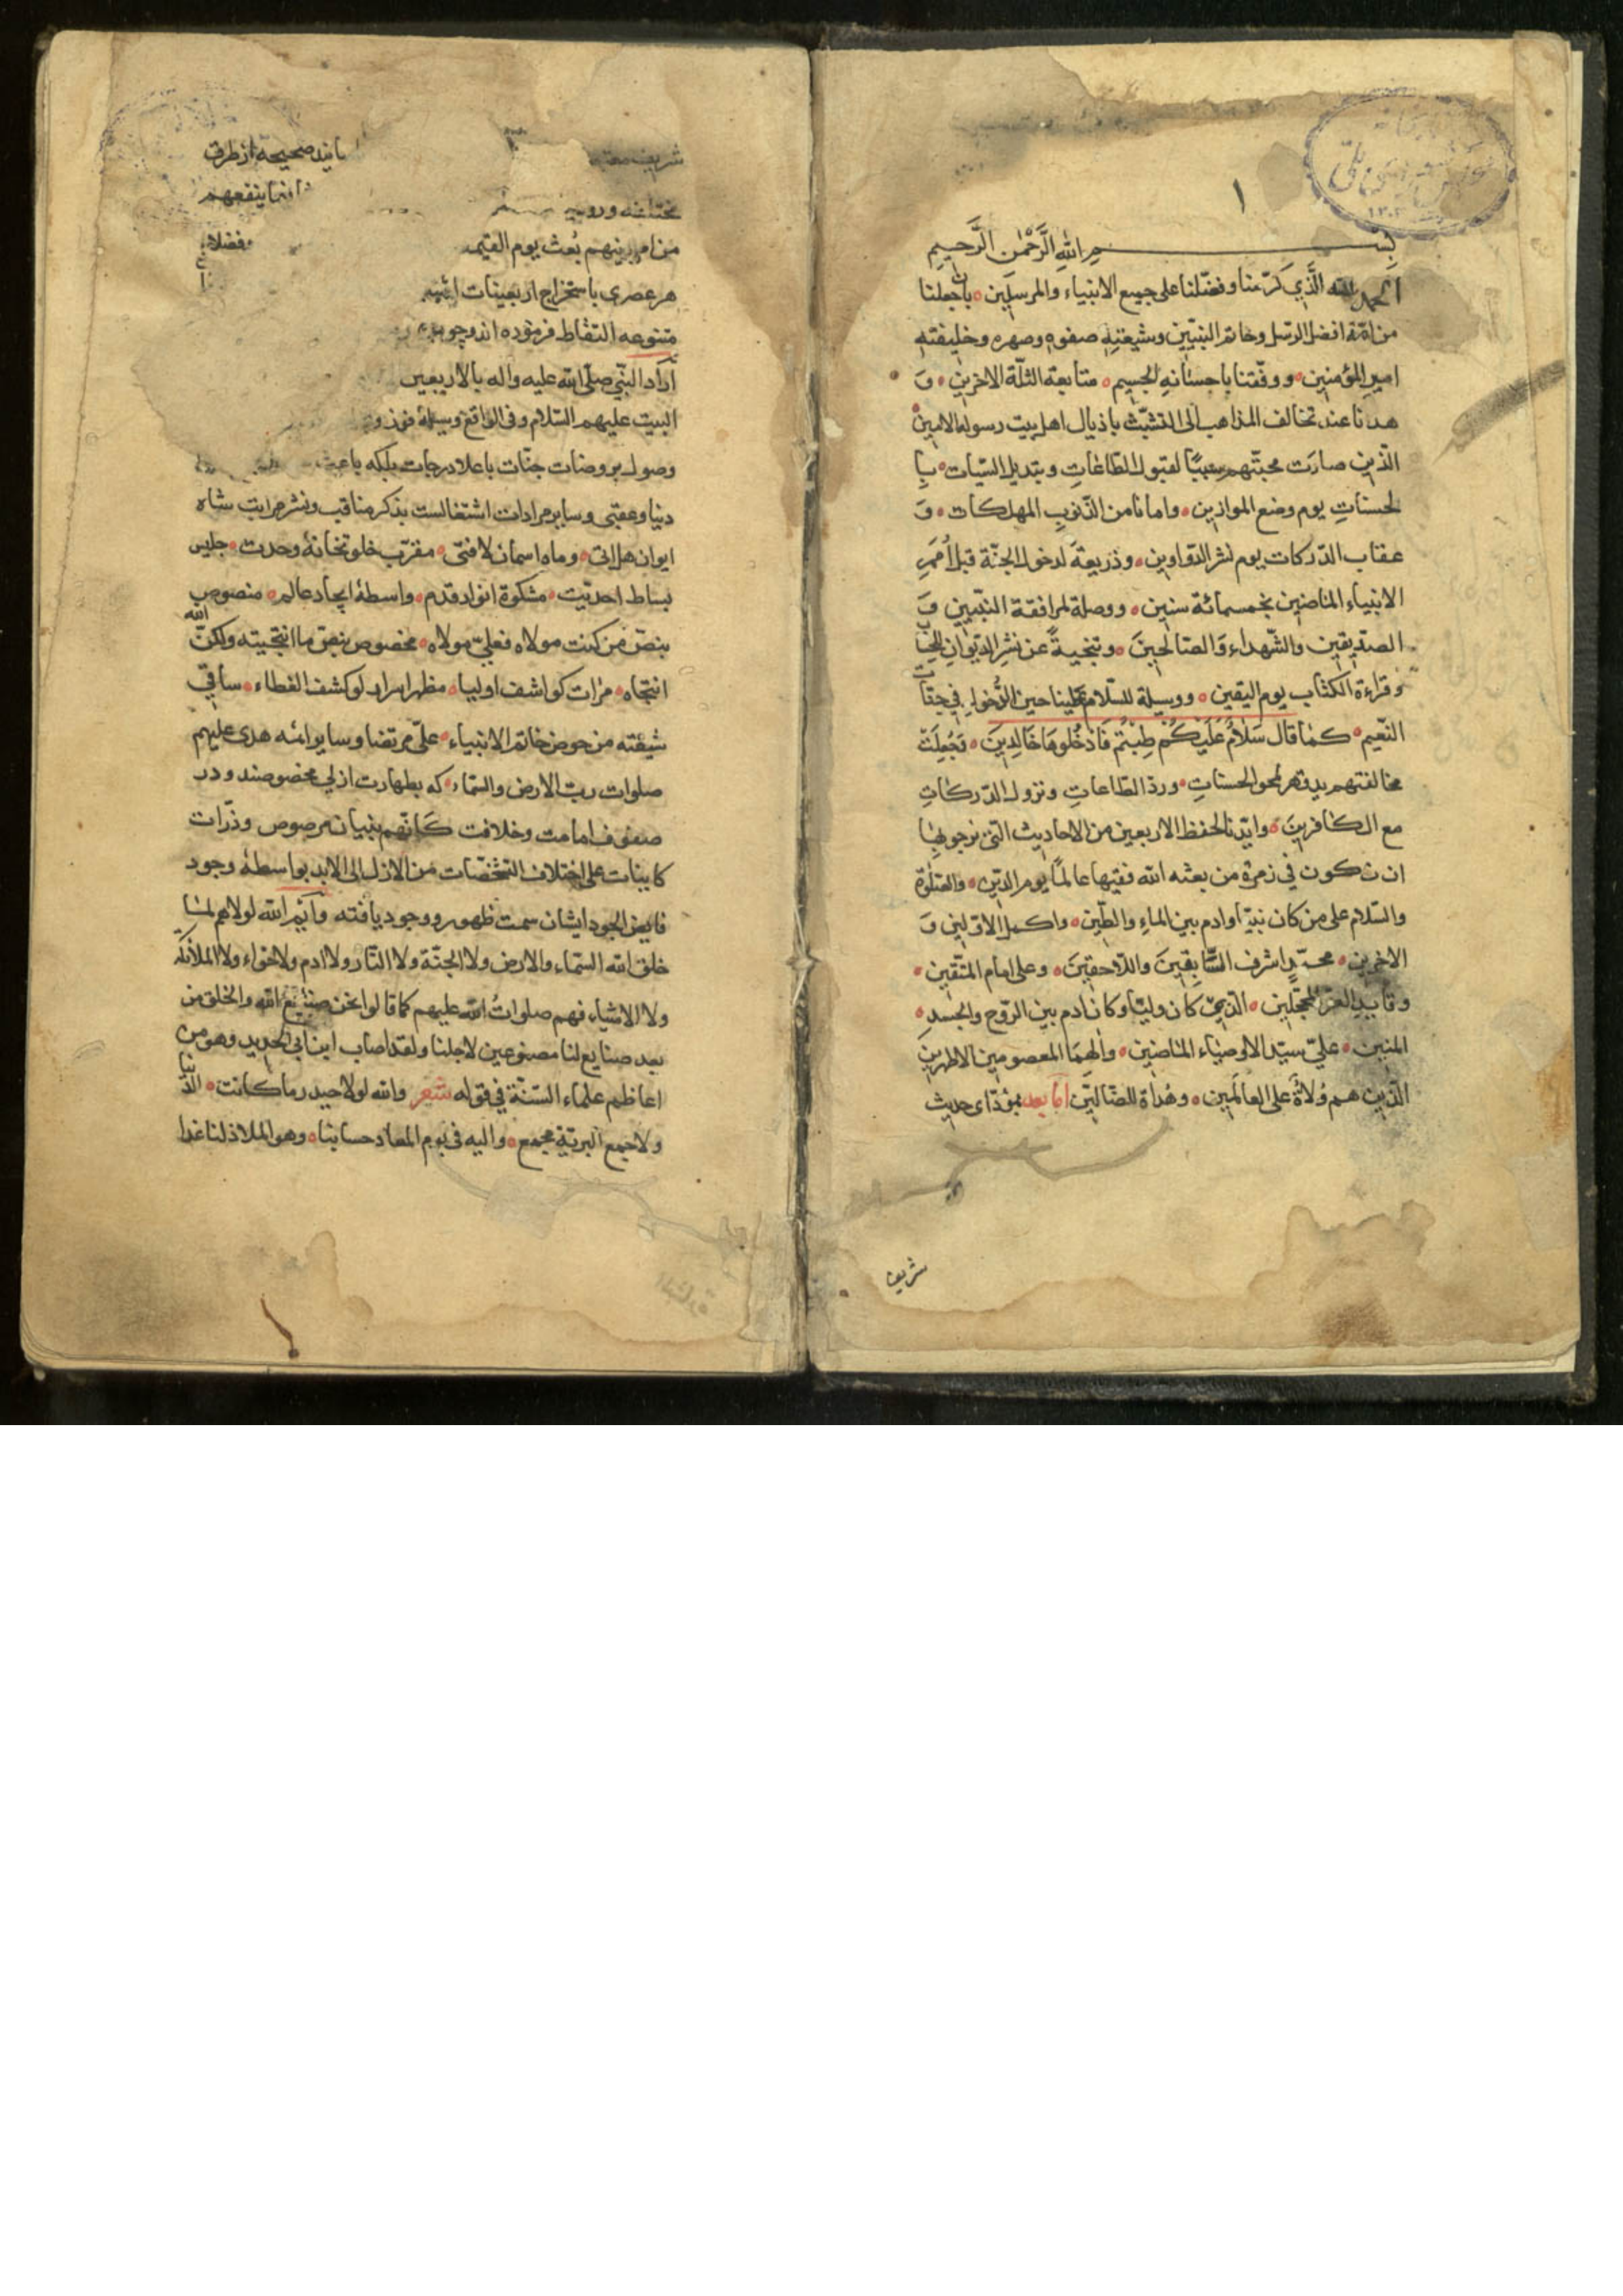 ١
بسم الله الرحمن الرحيم
الحمد لله الَّذِي كَرّمنا وفضّلنا على جميع الانبياء والمرسلين بان جعلنا
من امّة افضل الرسل وخاتم النبيّين وشيعتِهِ صفوه وصهره وخليفته
امير المؤمنين ووفّقنا باحسانه الجسيم متابعة الثلّة الاخرين وَ
هدانا عند تخالف المذاهب الى التشبّث باذيال اهل بيت رسوله الامين
الّذين صارَت محبّتهم سببًا لقبول الطاعاتِ وتبديل السّيّات بِا
لحسناتِ يوم وضع الموازين وامانا من الذّنوبِ المهلكات وَ
عقاب الدّركات يوم نشر الدّواوين وذريعةً لدخول الجنّة قبل اُمَمِ
الانبياء الماضين بخمسمائة سنين ووصلة لمرافقة النّبيّين وَ
الصدّيقين والشّهداء وَالصّالحينَ وتنجيةً عن نشرِ الدّيوانِ للحِسَاب
وقراءة الكتاب يوم اليقين ووسيلة للسّلام علينا حين الدُّخولِ في جنّات
النّعيم كما قال سَلَامٌ عَلَيْكُمْ طِبْتُمْ فَادْخُلُوهَا خَالِدِينَ وَجُعِلَتْ
مخالفتهم لمحو الحسناتِ وردّ الطّاعاتِ ونزول الدّركاتِ
مع الكافرينَ وايّدنا لحفظ الاربعين من الاحاديث التى نرجو بِهَا
ان نكون فى زمرة من بعثه الله فقيها عالمًا يوم الدّين والصّلوة
والسّلام على من كان نبيّا وادم بين الماءِ والطّين واكمل الاوّلين وَ
الاخرين محمّدٍ اشرف السَّابِقِينَ واللّاحقينَ وعلى امام المتّقين
وقايد الغرّ المحجّلين الّذى كان وليّا وكان ادم بين الرّوح والجسدِ
المنبين علىّ سيّد الاوصياء الماضين وآلهِمَا المعصومين الاطهرين
الّذين هم وُلاةٌ على العالَمين وهُداة للضّالّين امّا بعد بمؤدّاى حديث
شريف
شريف
بايند صحيحه از طرق
مختلفه وروايه
فيما ينفعهم
من امر دينهم بُعث يوم القيمه
فضلاء
هر عصرى باستخراج اربعينات
متنوعه التقاط فرموده اند وچون
اراد النّبى صلّى الله عليه وآله بالاربعين
البيت عليهم السّلام وفى الواقع وسيلهٔ
وصول بروضات جنّات باعلا درجات بلكه باعث
دنيا وعقبى وساير مرادات اشتغالست بذكر مناقب ونشر مراتب شاه
ايوان هل اتى وماه اسمان لا فتى مقرّب خلوتخانهٔ وحدت جليس
بساط احديّت مشكوة انوار قدم واسطهٔ ايجاد عالم منصوص
بنصّ من كنت مولاه فعلىّ مولاه مخصوص بنصّ ما انتجيته ولكنّ الله
انتجاه مرات كواشف اوليا مظهر اسرار لو كشف الغطاء ساقى
شيعته من حوض خاتم الانبياء علىّ مرتضا وساير ائمه هدى عليهم
صلوات ربّ الارض والسّماء كه بطهارت ازلى مخصوصند ودر
صفوف امامت وخلافت كَانّهم بنيان مرصوص وذرّات
كاينات على اختلاف التشخّصات من الازل الى الابد بواسطهٔ وجود
فايض الجود ايشان سمت ظهور ووجود يافته وايم الله لولاهم لما
خلق الله السّماء والارض ولا الجنّة ولا النّار ولا ادم ولا حوّاء ولا الملائكة
ولا الاشياء فهم صلواتُ الله عليهم كما قالوا نحن صنايع الله والخلق من
بعد صنايع لنا مصنوعين لاجلنا ولقد اصاب ابن ابى الحديد وهو من
اعاظم علماء السّنّة فى قوله شعر والله لولا حيدر ما كانت الدّنيا
ولا جمع البريّة مجمع واليه فى يوم المعاد حسابنا وهو الملاذ لنا غدا